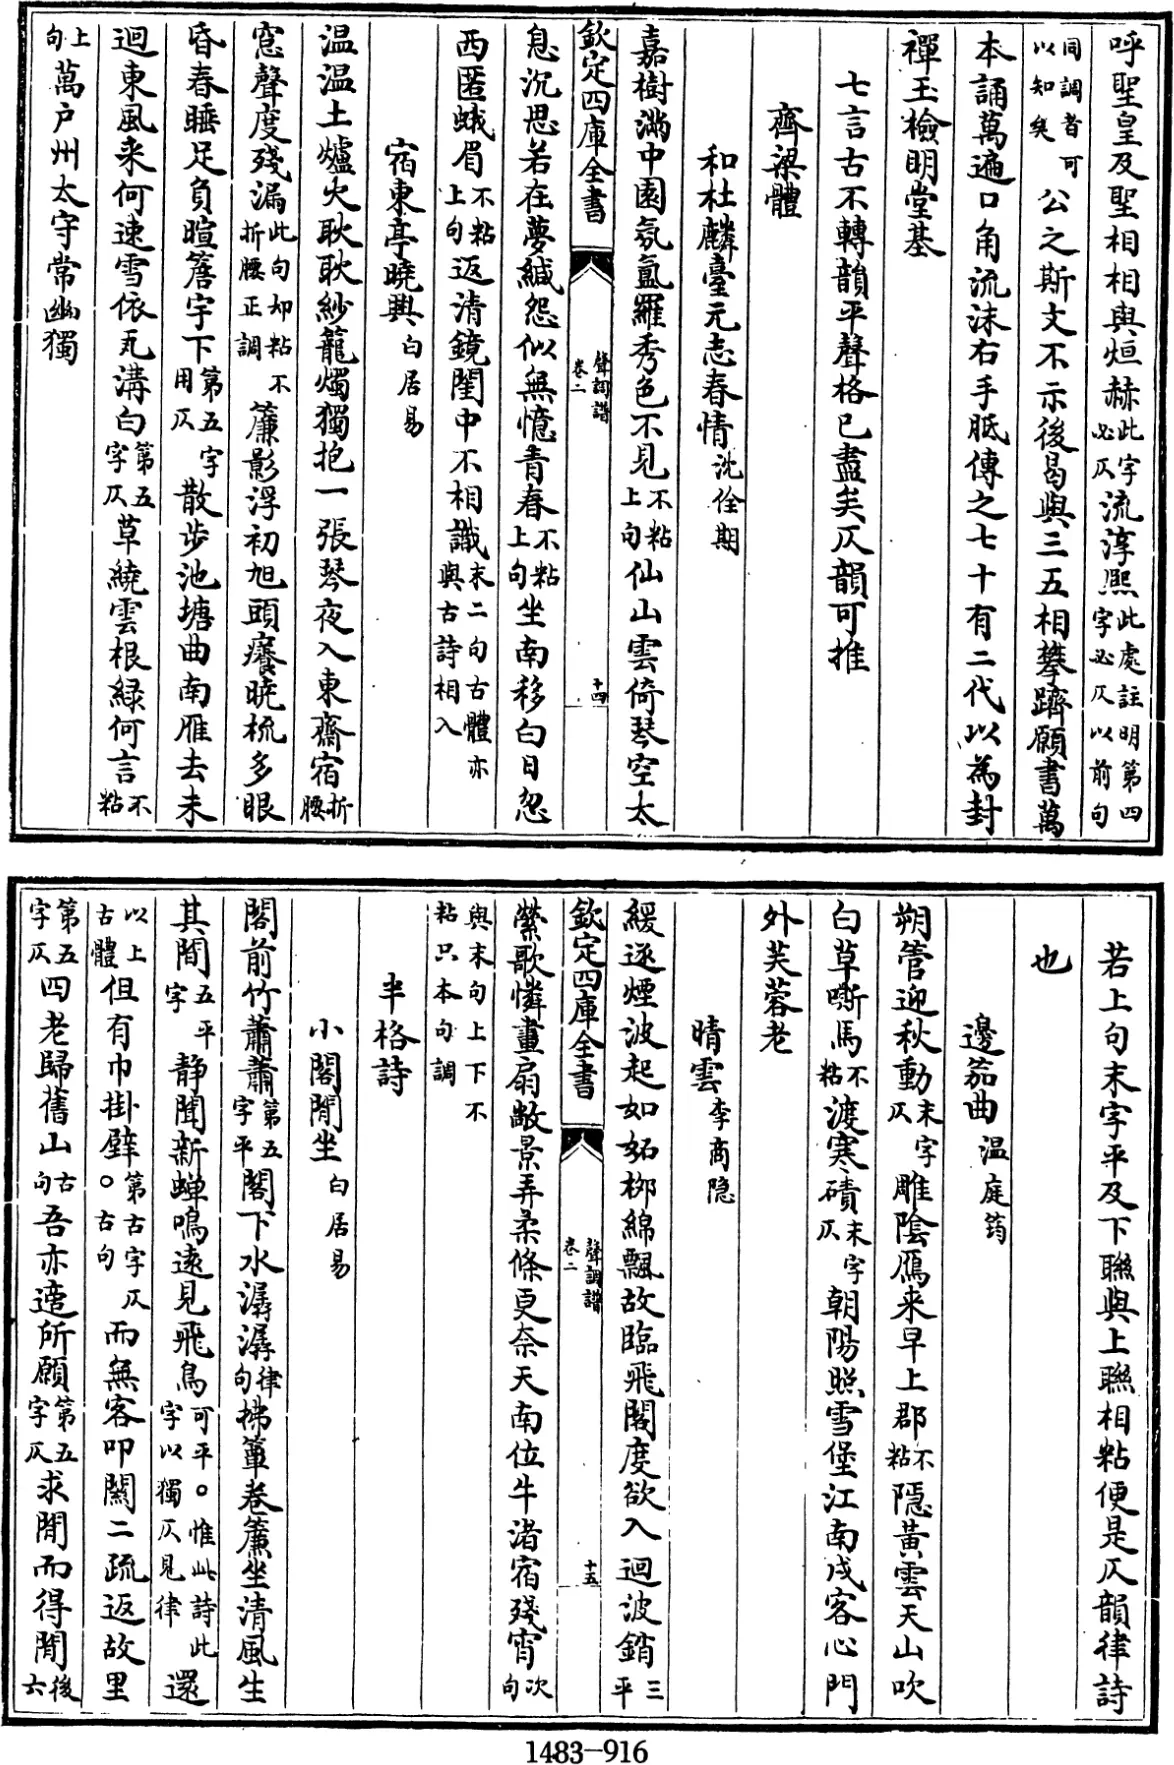 呼聖皇及聖相相與烜赫此字必仄流淳熙此處註明第四字必仄以前句
同調者可以知矣公之斯文不示後曷與三五相攀躋願書萬
本誦萬遍口角流沫右手胝傳之七十有二代以為封
禪玉檢明堂基
七言古不轉韻平聲格已盡矣仄韻可推
齊梁體
和杜麟臺元志春情沈佺期
嘉樹滿中園氛氳羅秀色不見不粘上句仙山雲倚琴空太
欽定四庫全書
聲調譜
卷二
十四
息沉思若在夢緘怨似無憶青春不粘上句坐南移白日忽
西匿蛾眉不粘上句返清鏡閨中不相識末二句古體亦與古詩相入
宿東亭曉興白居易
温温土爐火耿耿紗籠燭獨抱一張琴夜入東齋宿折腰
窓聲度殘漏此句却粘不折腰正調簾影浮初旭頭癢曉梳多眼
昏春睡足負暄簷宇下第五字用仄散步池塘曲南雁去未
迴東風来何速雪依瓦溝白第五字仄草繞雲根緑何言不粘
上句萬户州太守常幽獨
若上句末字平及下聯與上聯相粘便是仄韻律詩
也
邊笳曲温庭筠
朔管迎秋動末字仄雕陰鴈来早上郡不粘隱黄雲天山吹
白草嘶馬不粘渡寒磧末字仄朝陽照雪堡江南戍客心門
外芙蓉老
晴雲李商隠
緩逐煙波起如妬桞綿飄故臨飛閣度欲入迴波銷三平
欽定四庫全書
聲調譜
卷二
十五
縈歌憐畫扇敞景弄柔條更奈天南位牛渚宿殘宵次句
與末句上下不粘只本句調
半格詩
小閣閒坐白居易
閣前竹蕭蕭第五字平閣下水潺潺律句拂簟卷簾坐清風生
其間五平字静聞新蟬鳴遠見飛鳥可平。惟此詩此字以獨仄見律還
以上古體但有巾掛壁。第古字仄古句而無客叩闗二疏返故里
第五字仄四老歸舊山古句吾亦適所願第五字仄求閒而得閒後六
1483-916